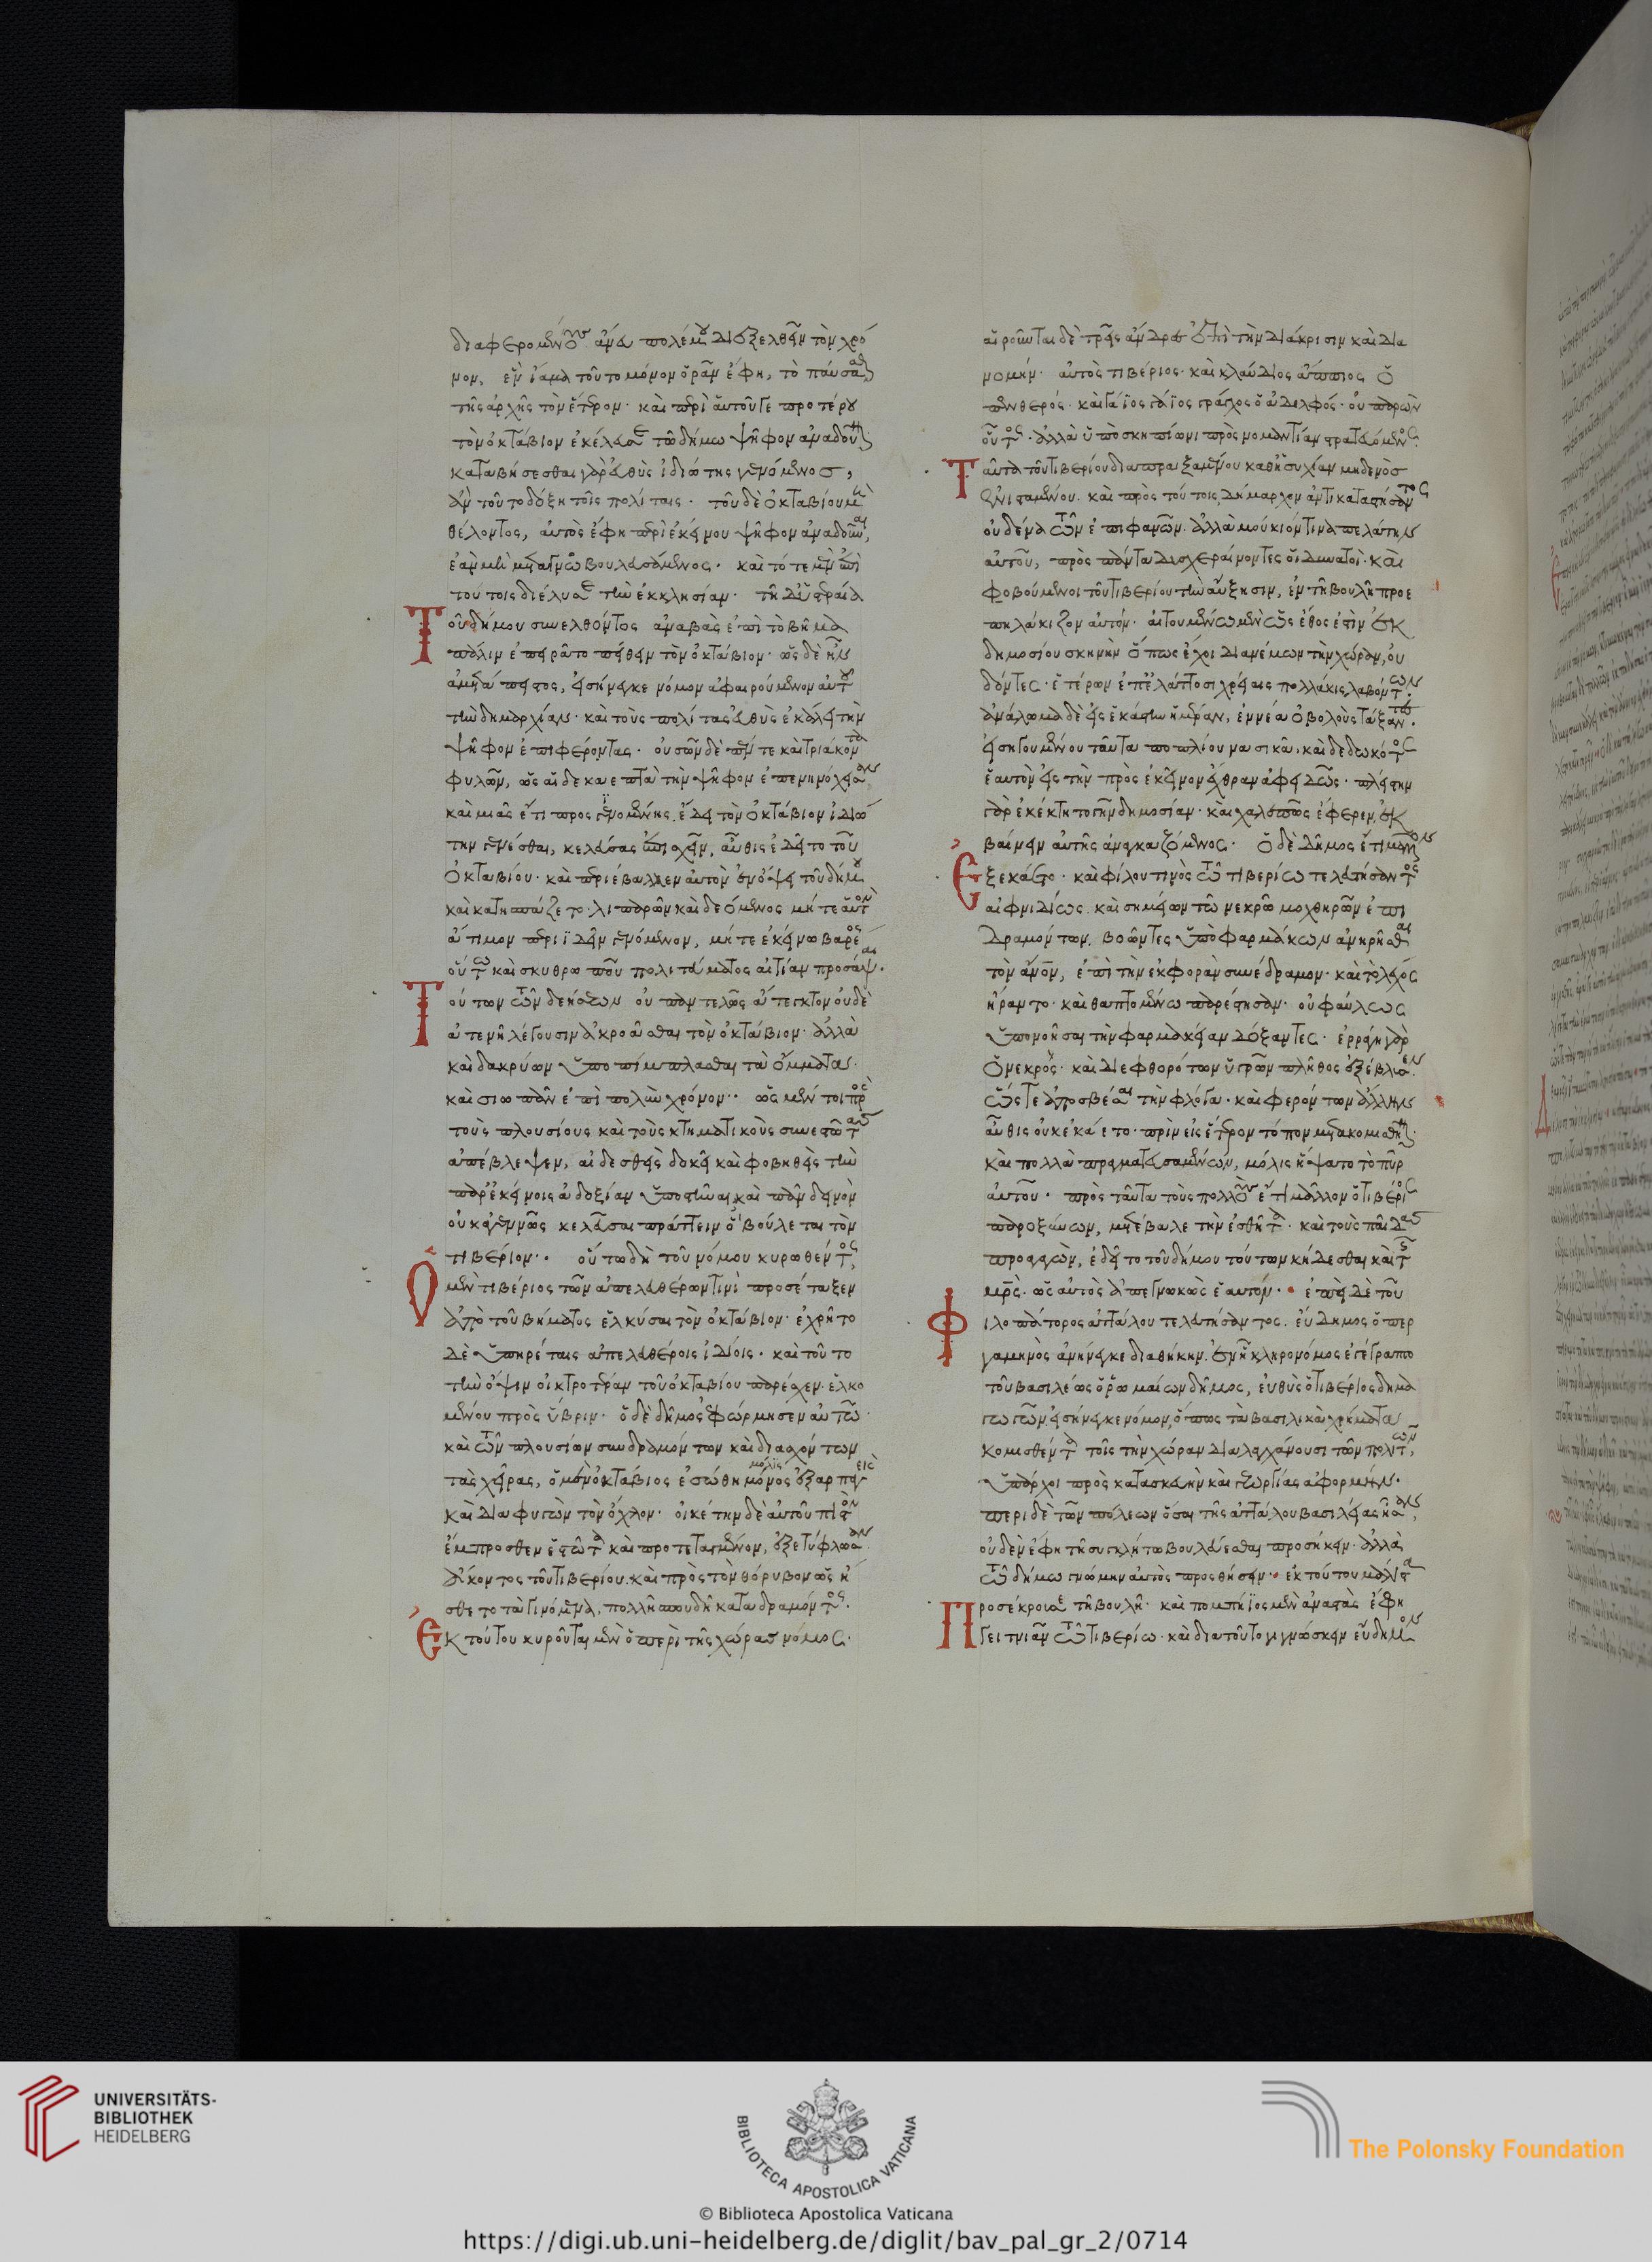 διαφερομένους ἄνευ πολέμου διεξελθεῖν τὸν χρό
νον, ἓν ἴαμα τοῦτο μόνον ὁρᾶν ἔφη, τὸ παύσασθαι
τῆς ἀρχῆς τὸν ἕτερον· καὶ περὶ αὐτοῦ γε προτέρου
τὸν ὀκτάβιον ἐκέλευσε τῶ δήμω ψῆφον ἀναδοῦναι·
καταβήσεσθαι γὰρ εὐθὺς ἰδιώτης γενόμενος,
ἂν τοῦτο δόξη τοῖς πολίταις· τοῦ δὲ ὀκταβίου μὴ
θέλοντος, αὐτὸς ἔφη περὶ ἐκείνου ψῆφον ἀναδώσειν,
ἐὰν μὴ μεταγνῶ βουλευσάμενος· καὶ τότε μὲν ἐπὶ
τούτοις διέλυσε τὴν ἐκκλησίαν· τῆ δ' ὑστεραία
Τοῦ δήμου συνελθόντος ἀναβὰς ἐπὶ τὸ βῆμα
πάλιν ἐπειρᾶτο πείθειν τὸν ὀκτάβιον· ὡς δὲ ἦν
ἀμετάπειστος, εἰσήνεγκε νόμον ἀφαιρούμενον αὐτοῦ
τὴν δημαρχίαν· καὶ τοὺς πολίτας εὐθὺς ἐκάλει τὴν
ψῆφον ἐπιφέροντας· οὐσῶν δὲ πέντε καὶ τριάκοντα
φυλῶν, ὡς αἱ δεκαεπτὰ τὴν ψῆφον ἐπενηνόχεισαν
καὶ μιᾶς ἔτι προσγενομένης ἔδει τὸν ὀκτάβιον ἰδιώ
την γενέσθαι, κελεύσας ἐπισχεῖν, αὖθις ἐδεῖτο τοῦ
ὀκταβίου· καὶ περιέβαλλεν αὐτὸν ἐν ὄψει τοῦ δήμου
καὶ κατησπάζετο· λιπαρῶν καὶ δεόμενος μήτε αὑτὸν
ἄτιμον περιϊδεῖν γενόμενον, μήτε ἐκείνω βαρέος
οὕτω καὶ σκυθρωποῦ πολιτεύματος αἰτίαν προσάψαι·
Τούτων τῶν δεήσεων οὐ παντελῶς ἄτεγκτον οὐδὲ
ἀτενῆ λέγουσιν ἀκροᾶσθαι τὸν ὀκτάβιον· ἀλλὰ
καὶ δακρύων ὑποπίμπλασθαι τὰ ὄμματα·
καὶ σιωπᾶν ἐπὶ πολὺν χρόνον· ὡς μέντοι πρὸς
τοὺς πλουσίους καὶ τοὺς κτηματικοὺς συνεστῶτας
ἀπέβλεψεν, αἰδεσθεὶς δοκεῖ καὶ φοβηθεὶς τὴν
παρ' ἐκείνοις ἀδοξίαν ὑποστῆναι καὶ πᾶν δεινὸν
οὐκ ἀγεννῶς κελεῦσαι πράττειν ὃ βούλεται τὸν
τιβέριον· οὕτω δὴ τοῦ νόμου κυρωθέντος,
Ὁ μὲν τιβέριος τῶν ἀπελευθέρων τινὶ προσέταξεν
ἀπὸ τοῦ βήματος ἑλκύσαι τὸν ὀκτάβιον· ἐχρῆτο
δὲ ὑπηρέταις ἀπελευθέροις ἰδίοις· καὶ τοῦτο
τὴν ὄψιν οἰκτροτέραν τοῦ ὀκταβίου παρέσχεν ἑλκο
μένου πρὸς ὕβριν· ὁ δὲ δῆμος ἐφώρμησεν αὐτῶ
καὶ τῶν πλουσίων συνδραμόντων καὶ διασχόντων
τὰς χεῖρας, ὁ μὲν ὀκτάβιος ἐσώθη μόλις μόνος ἐξαρπαγεὶς
καὶ διαφυγὼν τὸν ὄχλον· οἰκέτην δὲ αὐτοῦ πιστὸν
ἔμπροσθεν ἑστῶτα καὶ προτεταγμένον, ἐξετύφλωσαν
ἄκοντος τοῦ τιβερίου· καὶ πρὸς τὸν θόρυβον ὡς ἤ
σθετο τὰ γινόμενα, πολλῆ σπουδῆ καταδραμόντος·
Ἐκ τούτου κυροῦται μὲν ὁ περὶ τῆς χώρας νόμος·
αἱροῦνται δὲ τρεῖς ἄνδρες ἐπὶ τὴν διάκρισιν καὶ δια
νομήν· αὐτὸς τιβέριος· καὶ κλαύδιος ἄππιος ὁ
πενθερός· καὶ γάϊος γάϊος γράγχος ὁ ἀδελφός· οὐ παρὼν
οὗτος· ἀλλὰ ὑπὸ σκηπίωνι πρὸς νομαντίαν στρατευόμενος·
Ταῦτα τοῦ τιβερίου διαπραξαμένου καθ' ἡσυχίαν μηδενὸς
ἐνισταμένου· καὶ πρὸς τούτοις, δήμαρχον ἀντικαταστήσαντος
οὐδένα τῶν ἐπιφανῶν· ἀλλὰ μούκιόν τινα πελάτην
αὐτοῦ, πρὸς πάντα δυσχεραίνοντες οἱ δυνατοὶ· καὶ
φοβούμενοι τοῦ τιβερίου τὴν αὔξησιν, ἐν τῆ βουλῆ προε
πηλάκιζον αὐτόν· αἰτουμένω μὲν ὡς ἔθος ἐστὶν ἐκ
δημοσίου σκηνὴν ὅπως ἔχοι διανέμων τὴν χώραν, οὐ
δόντες· ἑτέρων ἐπὶ ἐλάττοσι χρείαις πολλάκις λαβόντων·
ἀνάλωμα δὲ εἰς ἑκάστην ἡμέραν, ἐννέα ὀβολοὺς τάξαντες·
εἰσηγουμένου ταῦτα ποπλίου νασικᾶ· καὶ δεδωκότος
ἑαυτὸν εἰς τὴν πρὸς ἐκεῖνον ἔχθραν ἀφειδῶς· πλείστην
γὰρ ἐκέκτητο γῆν δημοσίαν· καὶ χαλεπῶς ἔφερεν, ἐκ
βαίνειν αὐτῆς ἀναγκαζόμενος· ὁ δὲ δῆμος ἔτι μᾶλλον
Ἐξεκάετο· καὶ φίλου τινὸς τῶ τιβερίω τελευτήσαντος
αἰφνιδίως· καὶ σημείων τῶ νεκρῶ μοχθηρῶν ἐπι
δραμόντων, βοῶντες ὑπὸ φαρμάκων ἀνηρῆσθαι
τὸν ἄνθρωπον, ἐπὶ τὴν ἐκφορὰν συνέδραμον· καὶ τὸ λέχος
ἤραντο· καὶ θαπτομένω παρέστησαν· οὐ φαύλως
ὑπονοῆσαι τὴν φαρμακείαν δόξαντες· ἐρράγη γὰρ
ὁ νεκρὸς· καὶ διεφθορότων ὑγρῶν πλῆθος ἐξέβλυσεν
ὥστε ἀποσβέσαι τὴν φλόγα· καὶ φερόντων ἄλλην
αὖθις οὐκ ἐκάετο· πρὶν εἰς ἕτερον τόπον μετακομισθῆναι·
καὶ πολλὰ πραγματευσαμένων, μόλις ἥψατο τὸ πῦρ
αὐτοῦ· πρὸς ταῦτα τοὺς πολλοὺς ἔτι μᾶλλον ὁ τιβέριος
παροξύνων, μετέβαλε τὴν ἐσθῆτα· καὶ τοὺς παῖδας
προαγαγὼν, ἐδεῖτο τοῦ δήμου τούτων κήδεσθαι καὶ τῆς
μητρός· ὡς αὐτὸς ἀπεγνωκὼς ἑαυτόν· ἐπεὶ δὲ τοῦ
Φιλοπάτορος ἀττάλου τελευτήσαντος· εὔδημος ὁ περ
γαμηνὸς ἀνήνεγκε διαθήκην· ἐν ἧ κληρονόμος ἐγέγραπτο
τοῦ βασιλέως ὁ ῥωμαίων δῆμος, εὐθὺς ὁ τιβέριος δημα
γωγῶν, εἰσήνεγκε νόμον, ὅπως τὰ βασιλικὰ χρήματα
κομισθέντα τοῖς τὴν χώραν διαλαγχάνουσι τῶν πολιτῶν,
ὑπάρχοι πρὸς κατασκευὴν καὶ γεωργίας ἀφορμήν·
περὶ δὲ τῶν πόλεων ὅσαι τῆς ἀττάλου βασιλείας ἦσαν,
οὐδὲν ἔφη τῆ συγκλήτω βουλεύεσθαι προσήκειν· ἀλλὰ
τῶ δήμω γνώμην αὐτὸς προσθήσειν· ἐκ τούτου μάλιστα
Προσέκρουσε τῆ βουλῆ· καὶ πομπήϊος μὲν ἀναστὰς ἔφη
γειτνιᾶν τῶ τιβερίω· καὶ διὰ τοῦτο γιγνώσκειν εὔδημον
UNIVERSITÄTS-
BIBLIOTHEK
HEIDELBERG
BIBLIOTECA APOSTOLICA VATICANA
The Polonsky Foundation
© Biblioteca Apostolica Vaticana
https://digi.ub.uni-heidelberg.de/diglit/bav_pal_gr_2/0714